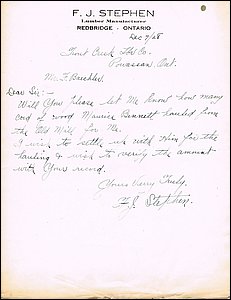 F. J. STEPHEN
Lumber Manufacturer
REDBRIDGE - ONTARIO
Dec 7/28
Trout Creek Co.
Powassan, Ont.
Mr. F.
Dear Sir:-
Will You please let Me know how many
cord of wood Maurice Bennett hauled from
the Old Mill for Me.
I wish to settle up with Him for the
hauling & wish to verify the amount
with Your record.
Yours Very Truly,
F.J. Stephen.